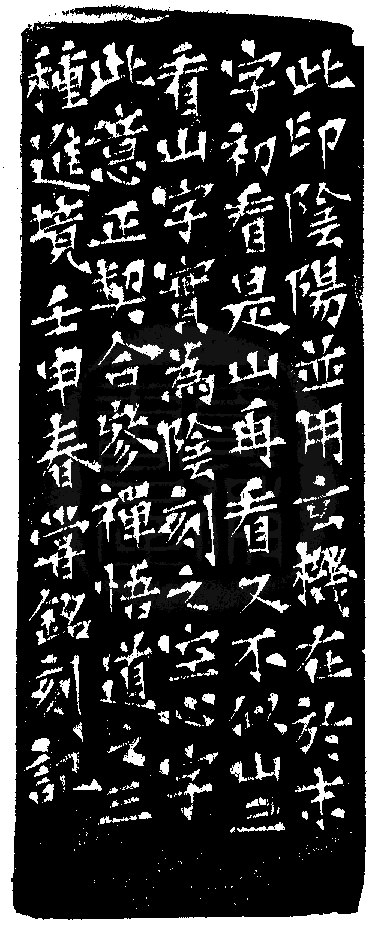 此印陰陽並用玄機在於末
字初看是山再看又不似山三
看山字實為陰刻之空心字
此意正契合參禪悟道之三
種進境壬申春銘刻記